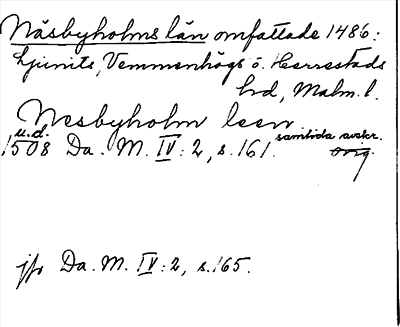 Näsbyholms län omfattade 1486:
Ljunits, Vemmenhögs o. Herrestads
hrd, Malm. l.
Nesbyholm leen
u.d. samtida avskr.
1508 Da. M. IV: 2, s. 161. orig.
jfr Da. M. IV: 2, s. 165.